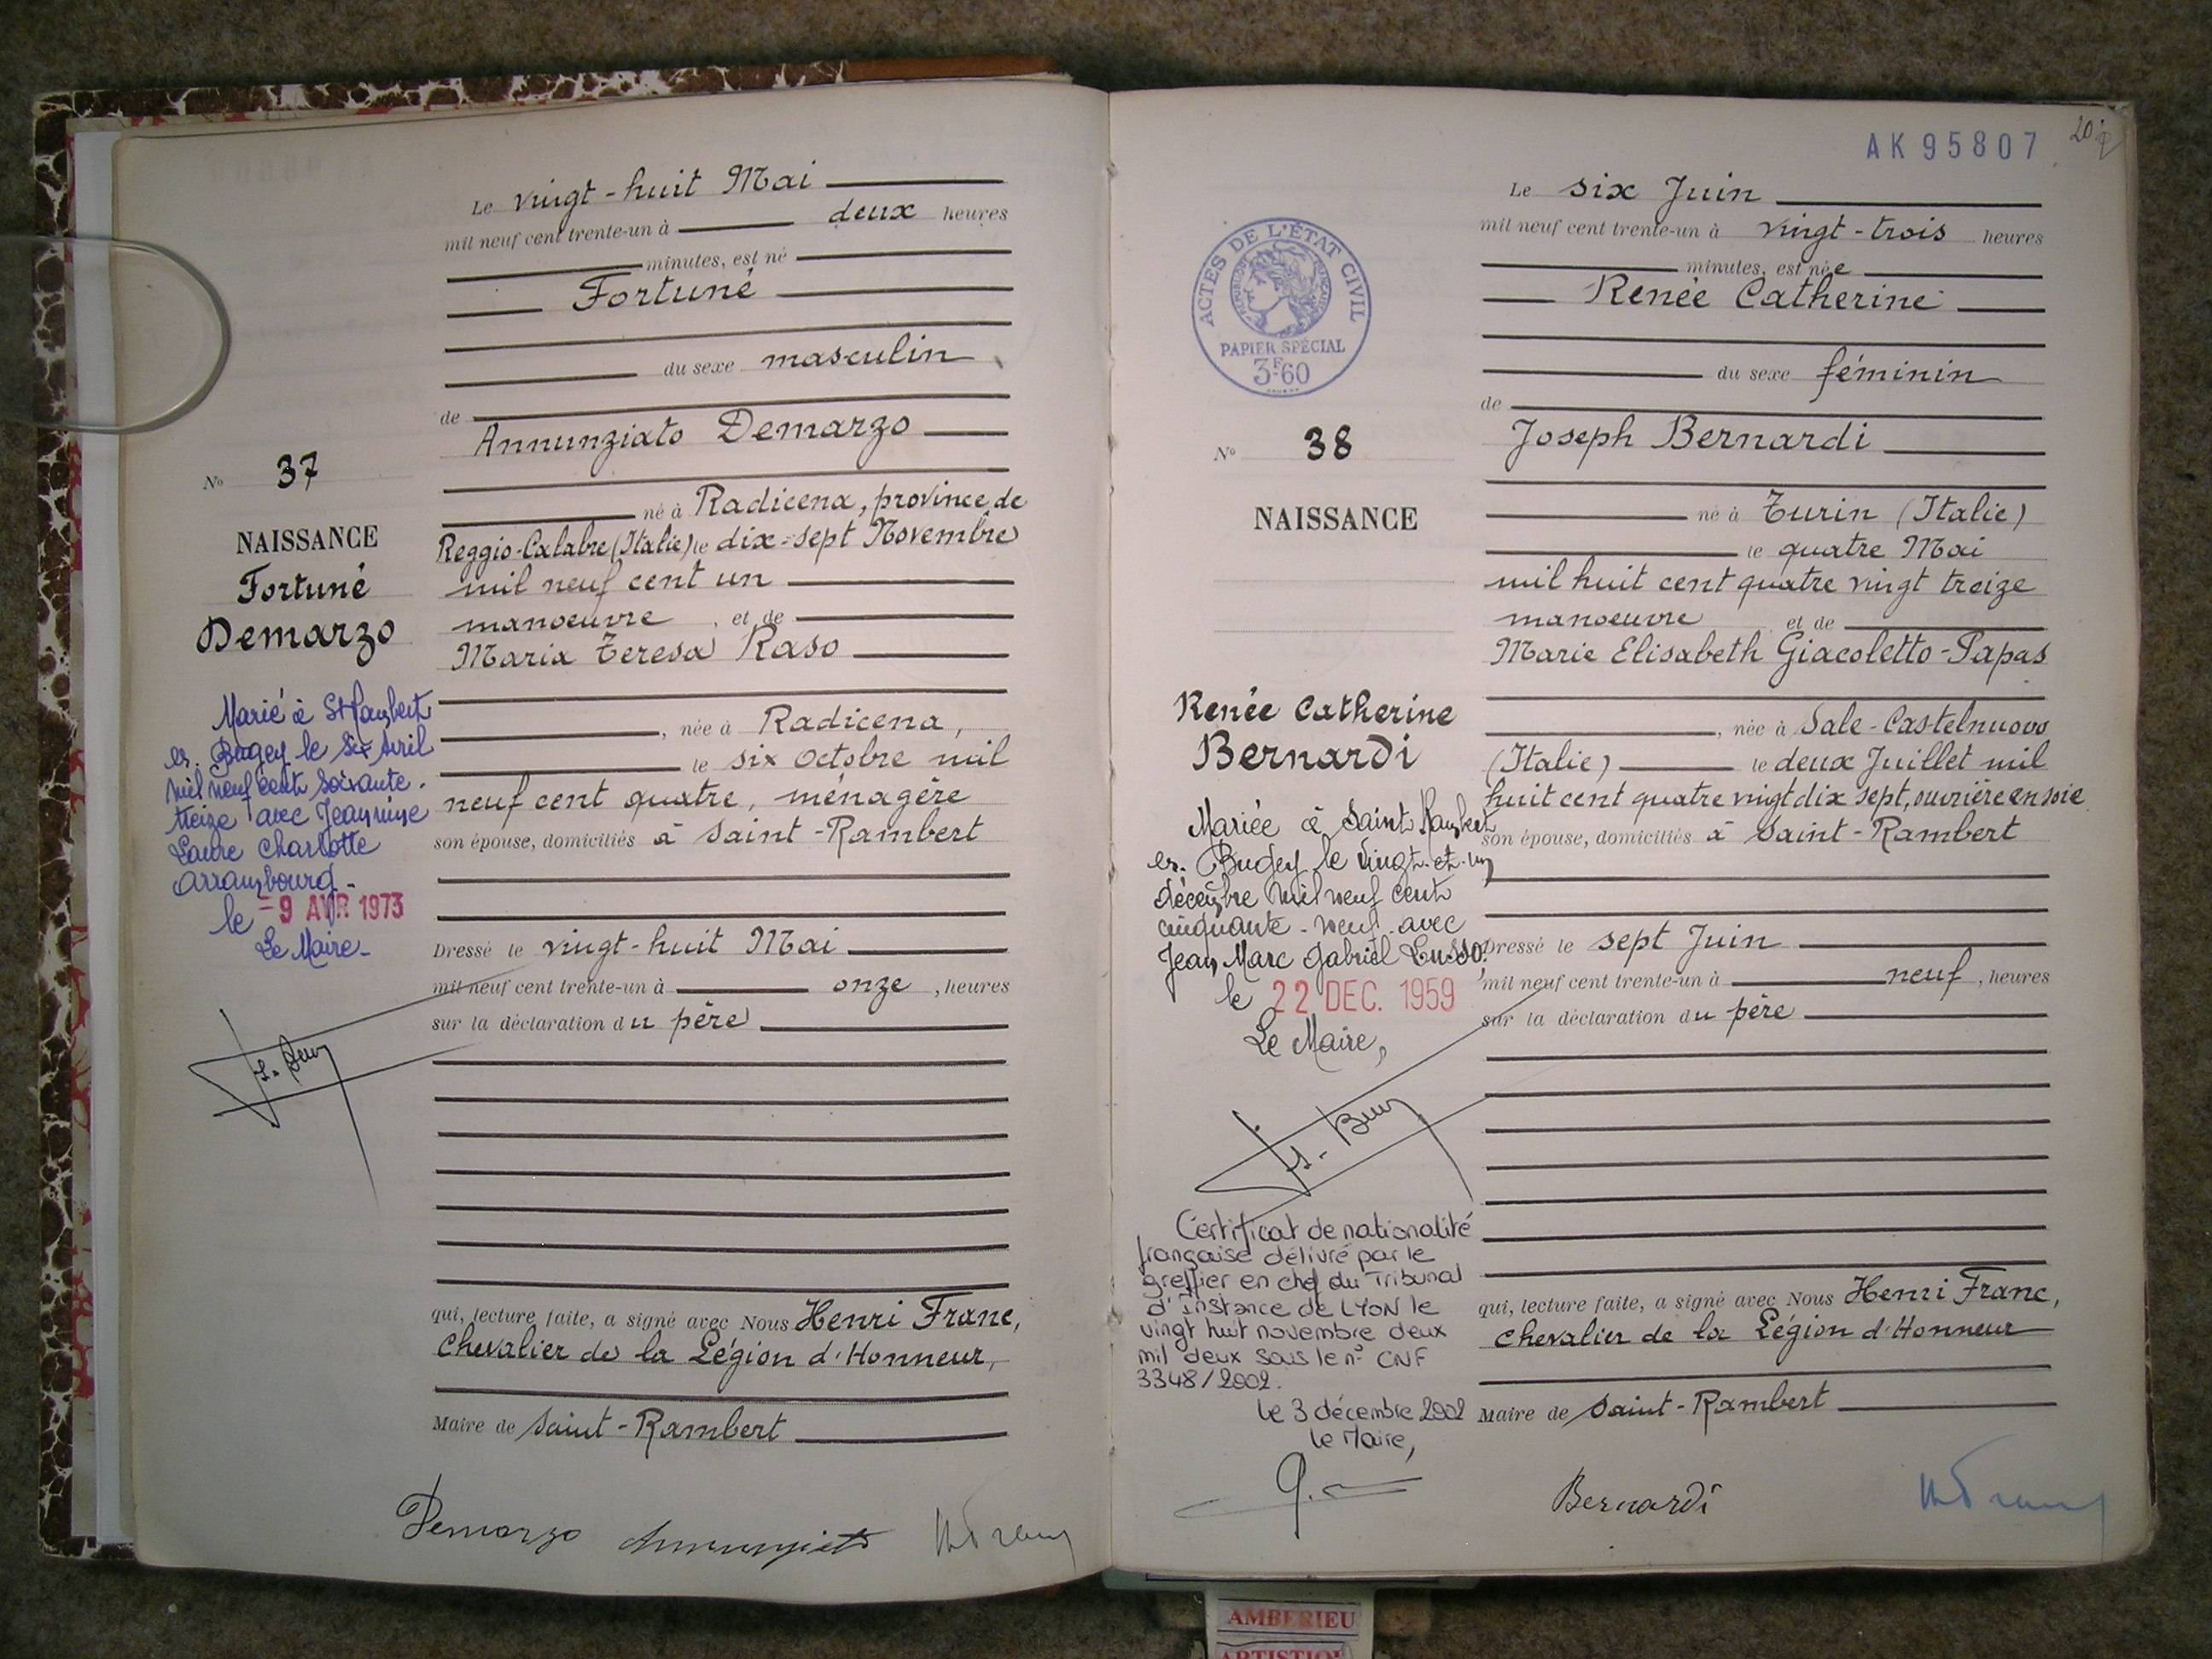 Le vingt-huit Mai
mil neuf cent trente-un à deux heures
minutes, est né
Fortuné
du sexe masculin
de
Annunziato Demarzo
né à Radicena, province de
Reggio-Calabre (Italie) le dix-sept Novembre
mil neuf cent un
manoeuvre, et de
Maria Teresa Raso
, née à Radicena,
le six octobre mil
neuf cent quatre, ménagère
son épouse, domiciliés à Saint-Rambert
Dressé le vingt-huit Mai
mil neuf cent trente-un à onze, heures
sur la déclaration du père
qui, lecture faite, a signé avec Nous Henri Franc,
Chevalier de la Légion d'Honneur,
Maire de Saint-Rambert
Demarzo Annunziato
No 37
NAISSANCE
Fortuné
Demarzo
Marié à St Rambert
en Bugey le six Avril
mil neuf cent soixante-
treize avec Jeannine
Laure Charlotte
Arrambourg-
le -9 AVR 1973
Le Maire-
AK 95807
Le six Juin
mil neuf cent trente-un à vingt-trois heures
minutes, est née
Renée Catherine
du sexe féminin
de
Joseph Bernardi
né à Turin (Italie)
le quatre Mai
mil huit cent quatre vingt treize
manoeuvre et de
Marie Elisabeth Giacoletto-Papas
, née à Sale-Castelnuovo
(Italie) le deux Juillet mil
huit cent quatre vingt dix sept, ouvrière en soie
son épouse, domiciliés à Saint-Rambert
Dressé le sept Juin
mil neuf cent trente-un à neuf, heures
sur la déclaration du père
qui, lecture faite, a signé avec Nous Henri Franc,
Chevalier de la Légion d'Honneur
Maire de Saint-Rambert
Bernardi
ACTES DE L'ÉTAT CIVIL
RÉPUBLIQUE FRANÇAISE
PAPIER SPÉCIAL
3F60
No 38
NAISSANCE
Renée Catherine
Bernardi
Mariée à Saint Rambert
en Bugey le vingt-et-un
décembre mil neuf cent
cinquante-neuf avec
Jean Marc Gabriel Lusso.
le 22 DEC. 1959
Le Maire,
Certificat de nationalité
française délivré par le
greffier en chef du Tribunal
d'instance de LYON le
vingt huit novembre deux
mil deux sous le n° CNF
3348/2002.
le 3 décembre 2002
le Maire,
AMBERIEU